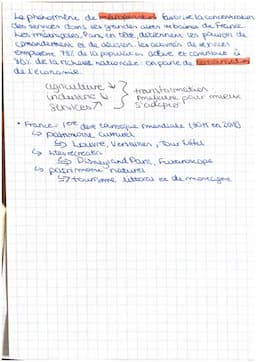 Le phénomène de métropolisation favorise la concentration
des services dans les grandes aires urbaines de France.
Les métropoles, Paris en tête, détiennent les pouvoirs de
commandement et de décision. Les activités de services
emploient 78% de la population active et contribue à
80% de la richesse nationale : on parle de tertiarisation
de l'économie.
agriculture ↘
industrie ↘
services ↗
transformation
majeure pour mieux
s'adapter
• France = 1ère dest touristique mondiale (90M en 2018)
↳ patrimoine culturel
↳ Louvre, Versailles, Tour Eiffel
↳ sites récréatifs
↳ Disneyland Paris, Futuroscope
↳ patrimoine naturel
↳ tourisme littoral et de montagne